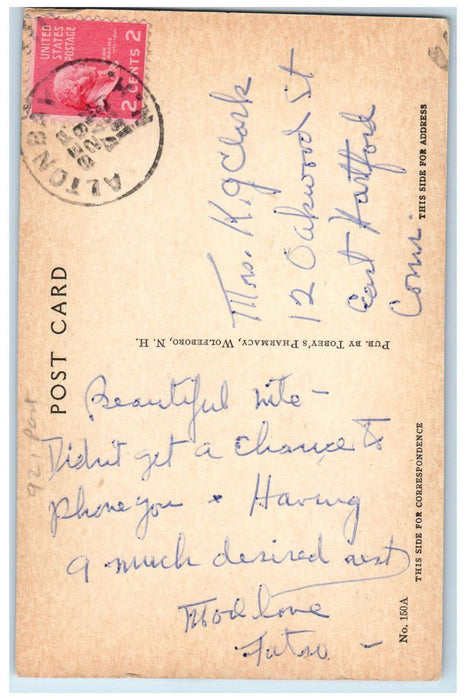 UNITED
STATES
POSTAGE
2 CENTS 2
ALTON BAY
N.H.
POST CARD
Mrs. K. g Clark
12 Oakwood St
East Hartford
Conn.
THIS SIDE FOR ADDRESS
PUB. BY TOBEY'S PHARMACY, WOLFEBORO, N. H.
921 part
Beautiful nite -
Didn't get a chance to
phone you + Having
a much desired rest
Mod love
Fatso -
No. 150A
THIS SIDE FOR CORRESPONDENCE